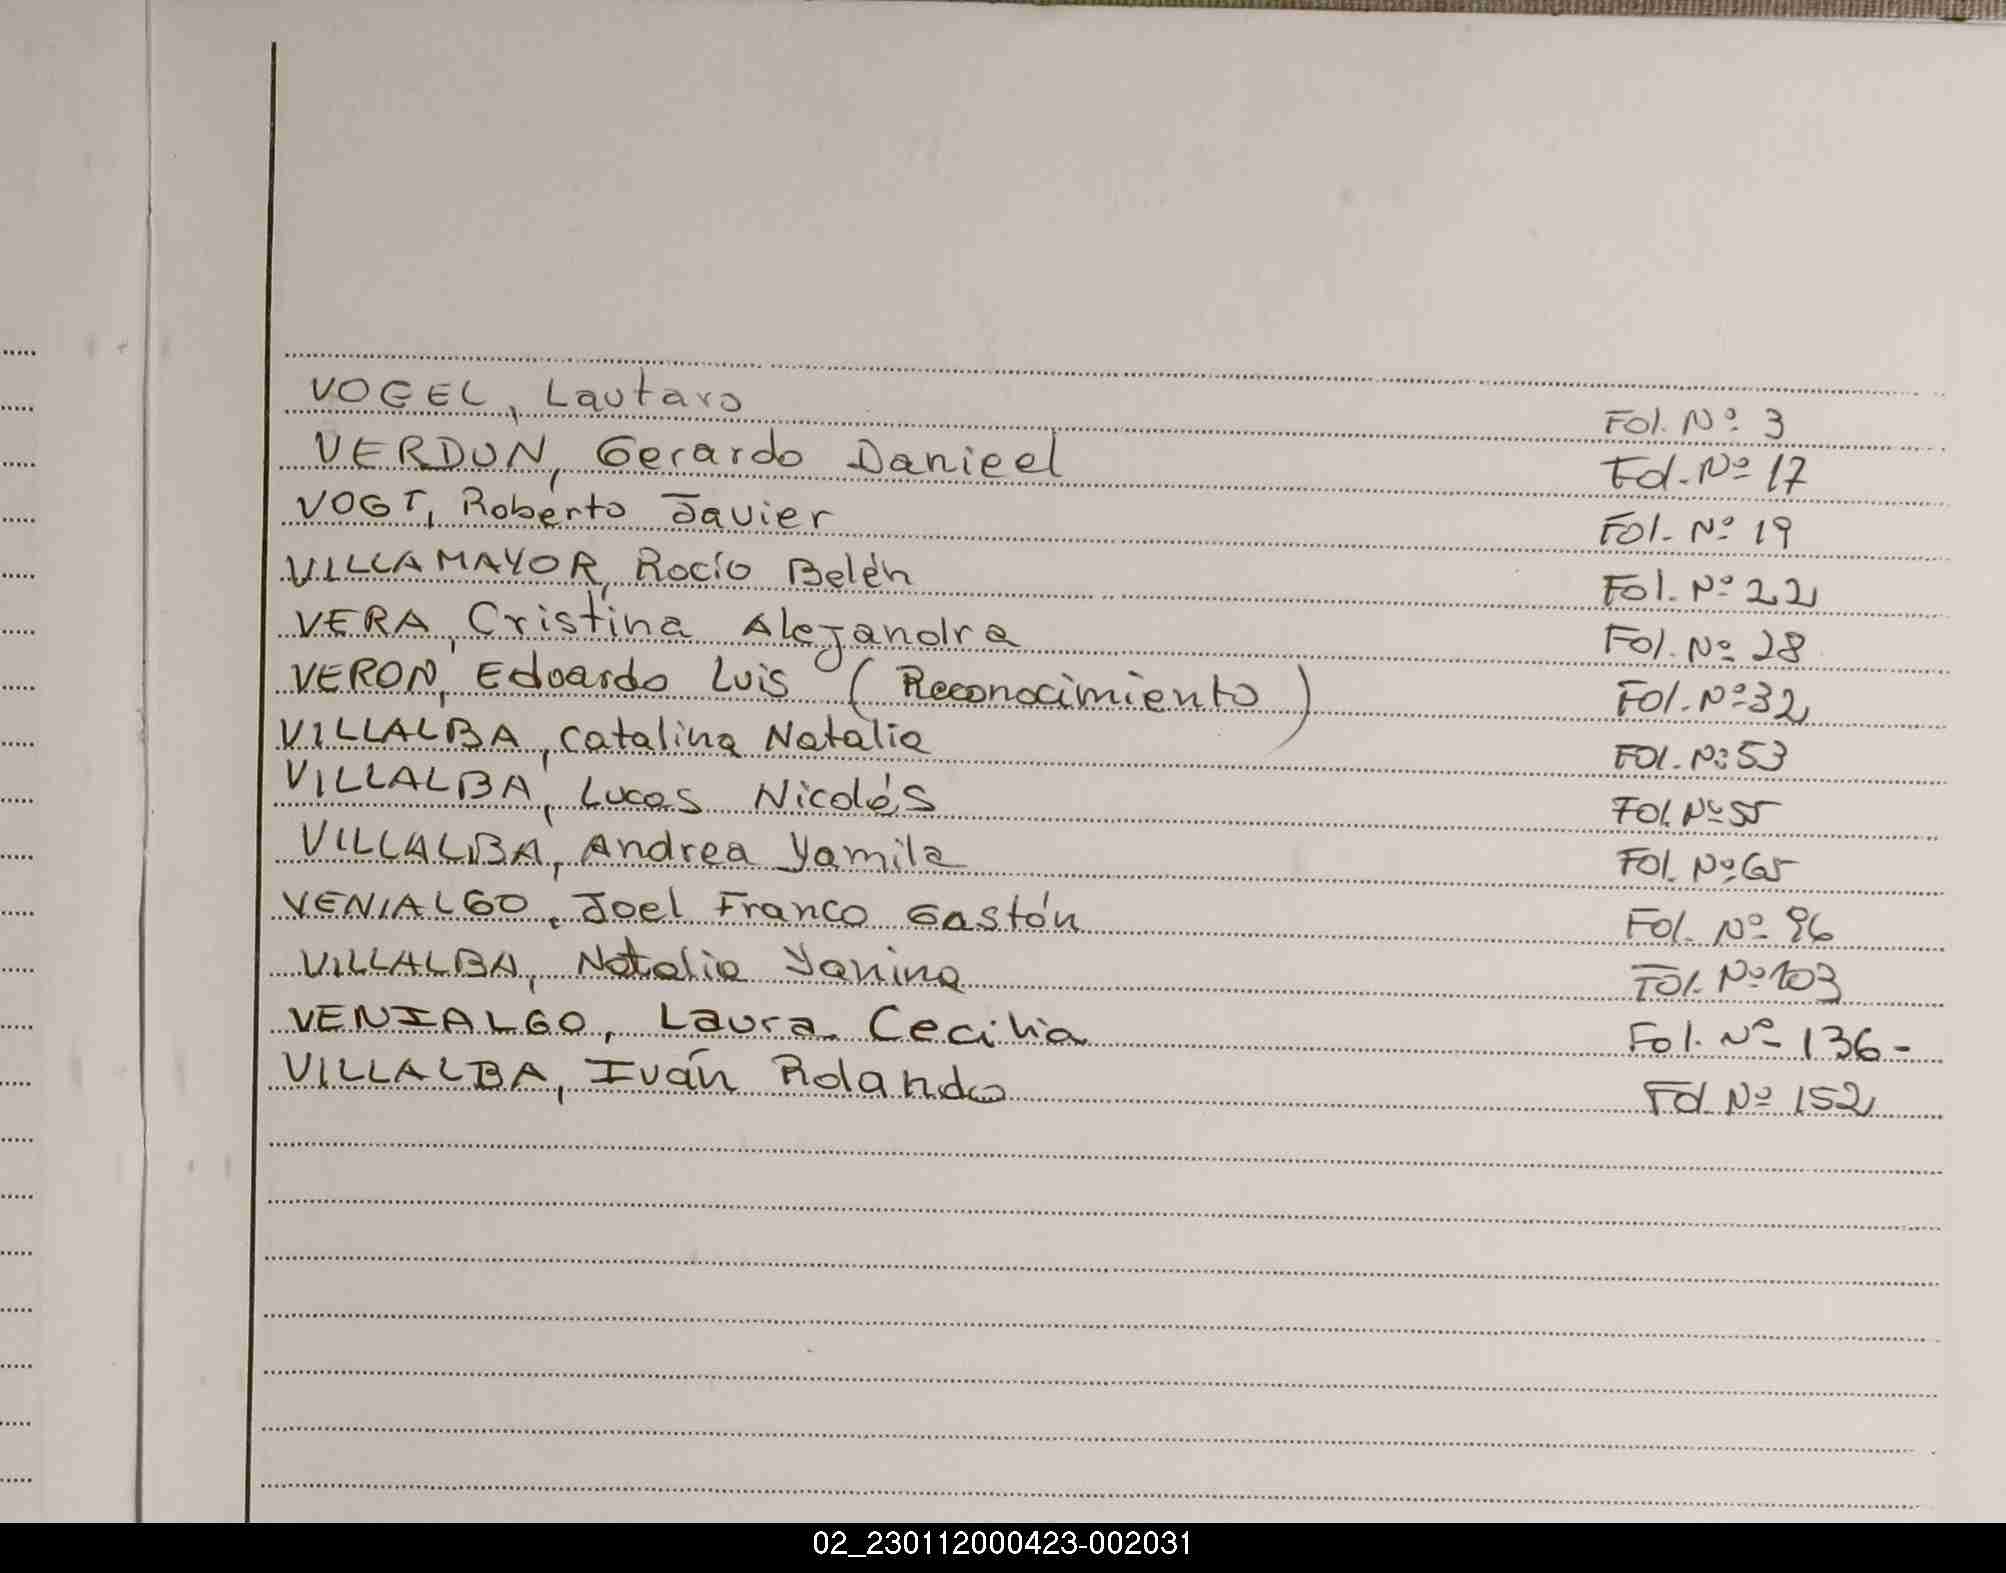 VOGEL, Lautaro Fol. Nº 3
VERDUN, Gerardo Danieel Fol. Nº 17
VOGT, Roberto Javier Fol. Nº 19
VILLAMAYOR, Rocío Belén Fol. Nº 22
VERA, Cristina Alejandra Fol. Nº 28
VERON, Eduardo Luis (Reconocimiento) Fol. Nº 32
VILLALBA, Catalina Natalia Fol. Nº 53
VILLALBA, Lucas Nicolás Fol. Nº 55
VILLALBA, Andrea Yamila Fol. Nº 65
VENIALGO, Joel Franco Gastón Fol. Nº 96
VILLALBA, Natalia Yanina Fol. Nº 103
VENIALGO, Laura Cecilia Fol. Nº 136-
VILLALBA, Iván Rolando Fol. Nº 152
02_230112000423-002031